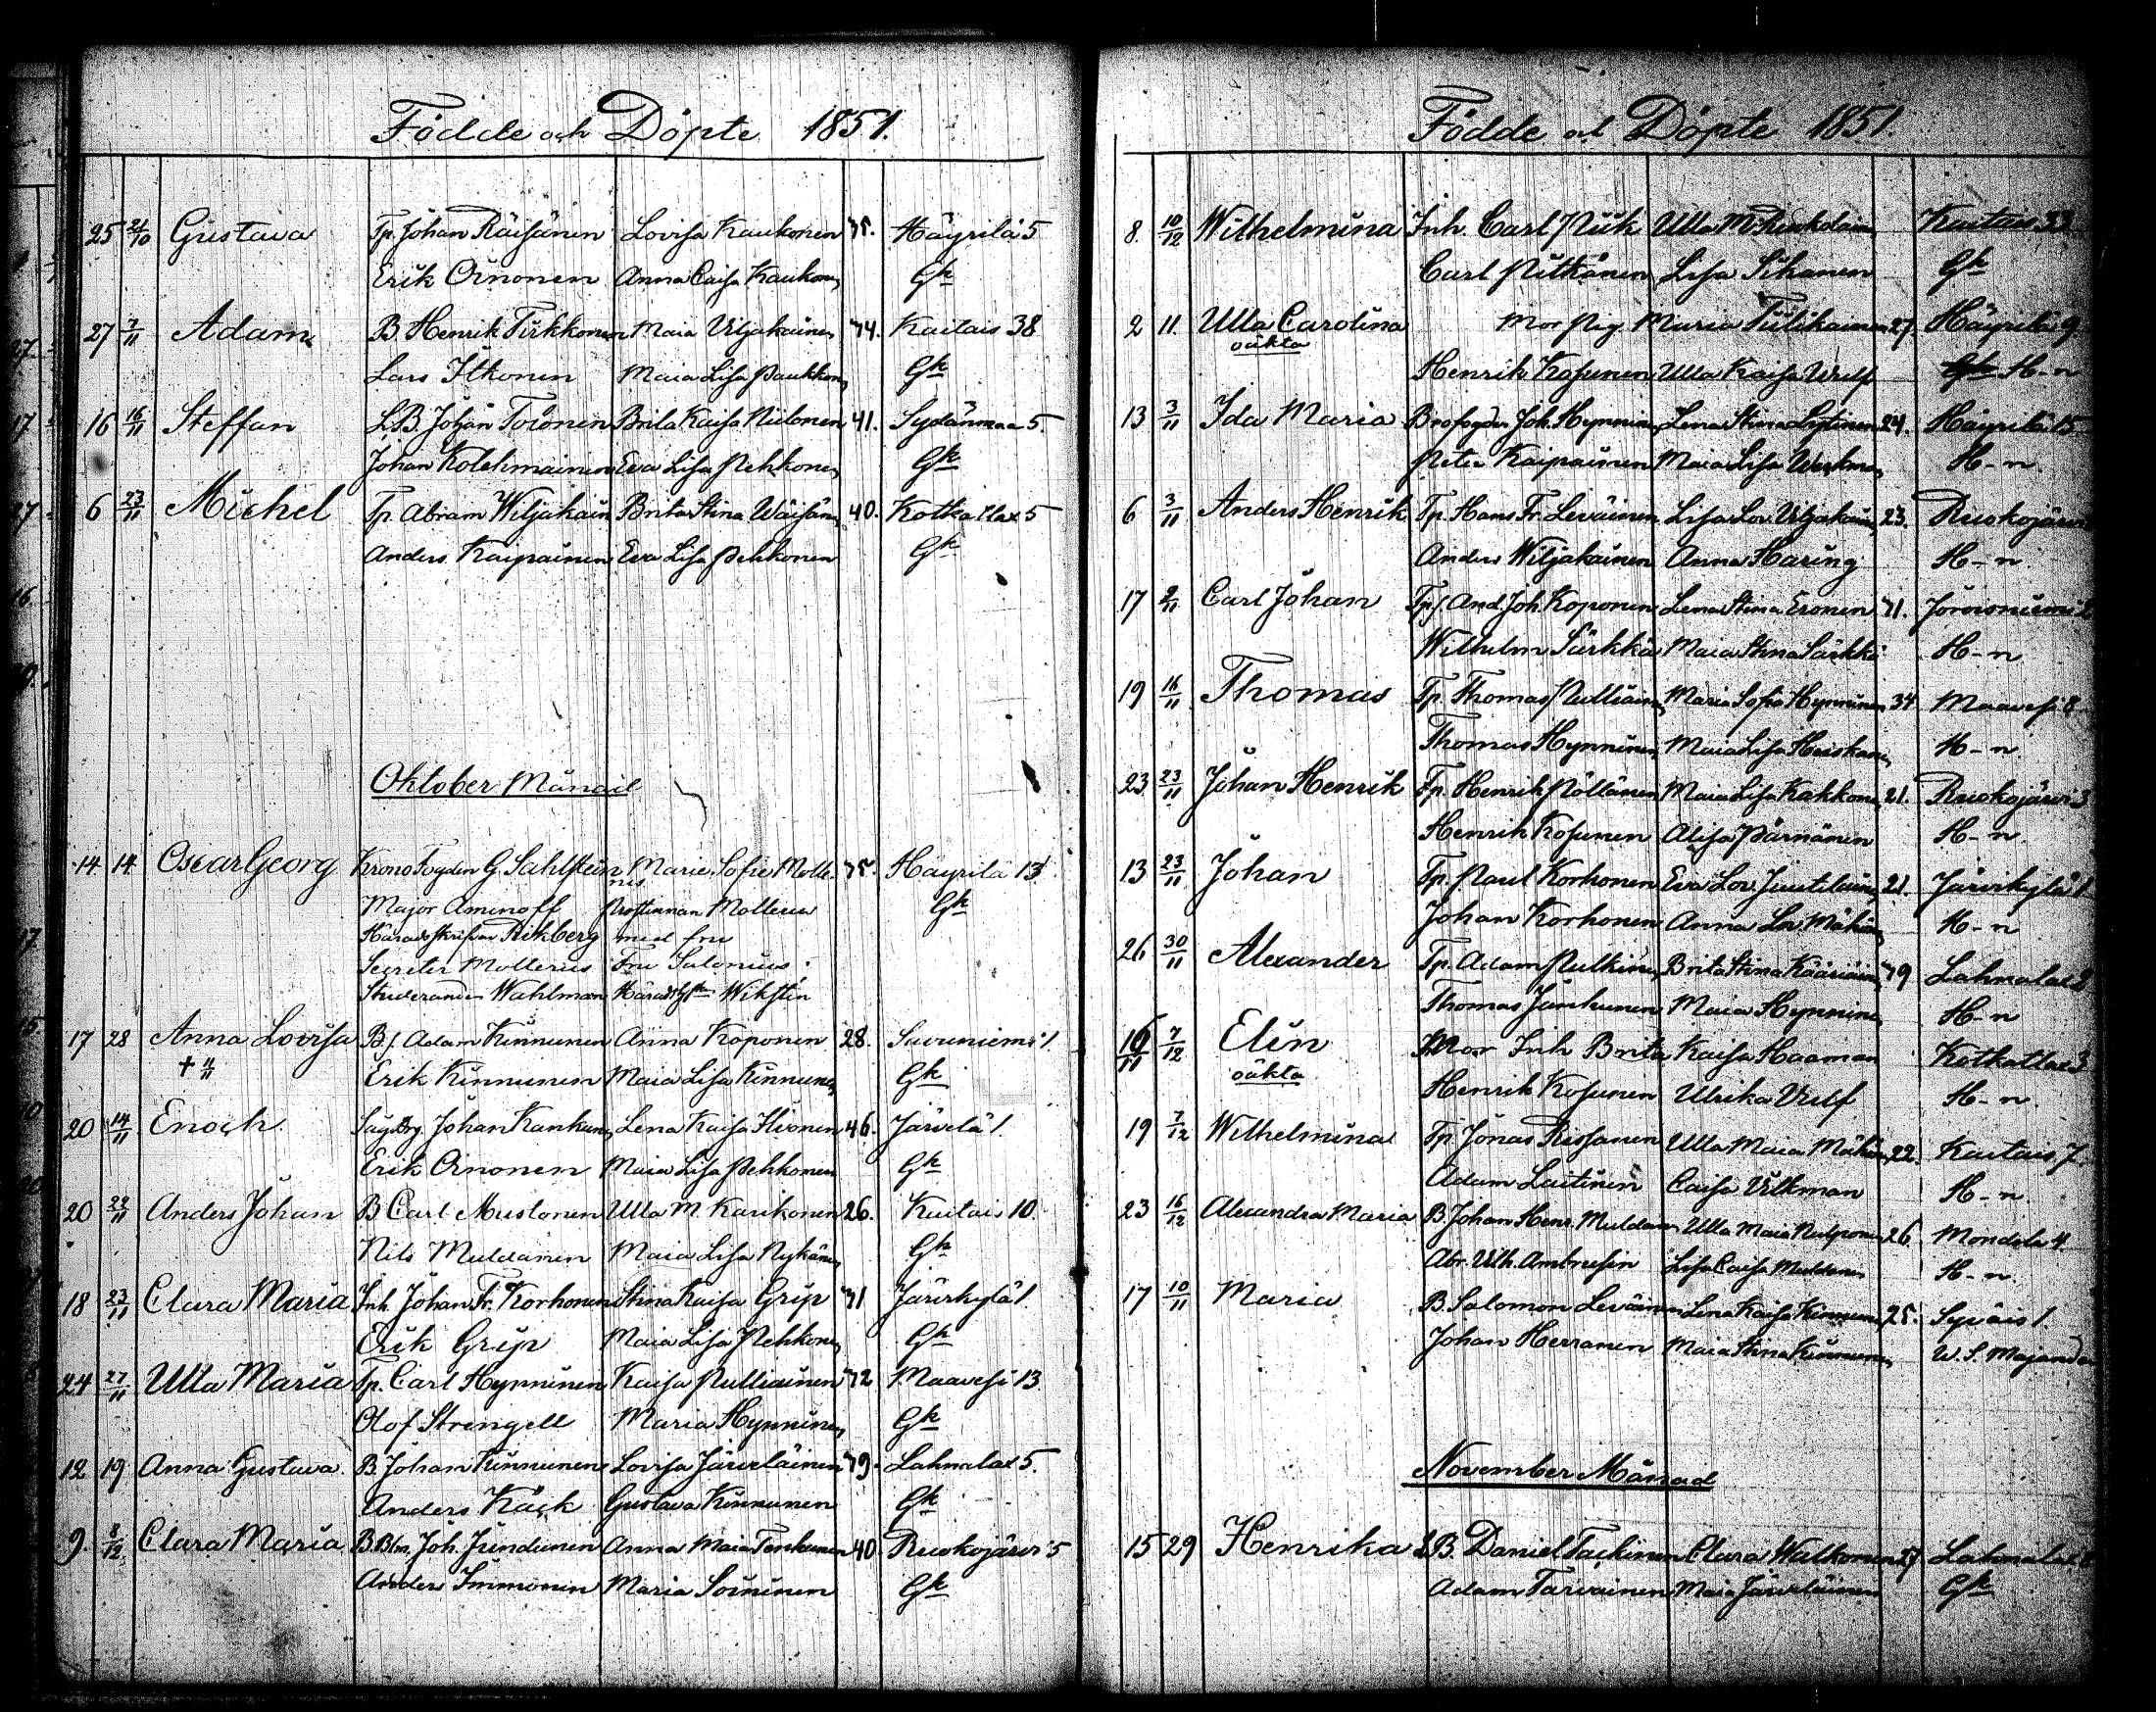 Födde och Döpte 1851.
25 21/10 Gustava Tp. Johan Räisänen Lovisa Kaukonen 75. Häyrilä 5
Erik Oinonen Anna Caisa Gk
27 7/11 Adam B Henrik Tirkkonen Maia Viljakainen 74. Kaitais 38
Lars Itkonen Maia Lisa Gk
16 16/11 Steffan L.B. Johan Toionen Brita Kaisa Niilonen 41. Sydänmaa 5.
Johan Kolehmainen Eva Lisa Pehkonen Gk
6 23/11 Michel Tp. Abram Wiljakain Brita Stina Wäisän 40. Kotkatlax 5
Anders Kaipainen Eva Lisa Pehkonen Gk
Oktober Månad
14 14 Oscar Georg Krono Fogden G. Sahlstein Marie Sofie Molle- 75. Häyrilä 13
nis
Major Aminoff Prostinnan Mollerus Gk
Häradsskrifvar Rikberg med fru
Mollerius Fru Salonius
Studeranden Wahlman Wikstén
17 28 Anna Lovisa B/. Adam Kinnunen Anna Koponen 28. Savuniemi 1.
+ 11/11 Erik Kinnunen Maia Lisa Kinnunen Gk
20 14/11 Enoch Johan Lena Kaisa Hironen 46. Järvelä 1.
Erik Oinonen Maia Lisa Pehkonen Gk
20 22/11 Anders Johan B Carl Mustonen Ulla M. Karikonen 26. Kaitais 10.
Nils Muldanen Maia Lisa Nykänen Gk
18 23/11 Clara Maria Inh. Johan Fr. Korhonen Stina Kaisa Grip 71 Järvikylä 1.
Erik Grip Maia Lisa Pehkonen Gk
24 27/11 Ulla Maria Tp. Carl Hynninen Kaisa Pulliainen 72 Maavesi 13
Olof Strengell Maria Hynninen Gk
12 19 Anna Gustava. B. Johan Kinnunen Lovisa Järveläinen 79. Lahnalax 5.
Anders Käck Gustava Kinnunen Gk
9. 8/12 Clara Maria B. Joh. Anna Maia Tenhunen 40. Ruokojärvi 5
Anders Immonen Maria Soininen Gk
Födde och Döpte 1851.
8. 10/12 Wilhelmina Inh. Carl Piik Ulla M. Kaitais 33
Carl Pitkänen Lisa Sihanen Gk
2 11. Ulla Carolina Mor Pig. Maria Tiilikainen 27. Häyrilä 9.
oäkta
Henrik Kosunen Ulla Kaisa Wulf Gk H-n
13 3/11 Ida Maria Joh. Hynninen Lena Stina Lytinen 24. Häyrilä 15
Peter Kaipainen Maia Lisa H-n.
6 3/11 Anders Henrik Tp. Hans Fr. Leväinen Lisa Lov. Viljakain 23. Ruokojärvi
Anders Wiljakainen Anna Haring H-n
17 2/11 Carl Johan Tp/. And. Joh. Koponen Lena Stina Eronen 71. Joroisniemi 2
Wilhelm Särkkä Maia Stina Särkkä H-n
19 16/11 Thomas Tp. Thomas Pulliainen Maria Sofia Hynninen 34 Maavesi 8
Thomas Hynninen Maia Lisa Heiskanen H-n.
23 23/11 Johan Henrik Tp. Henrik Pöllänen Maia Lisa Kakkonen 21. Ruokojärvi 3
Henrik Kosunen Alisa Pärnänen H-n.
13 23/11 Johan Tp. Paul Korhonen Eva Lov. Juutilainen 21. Järvikylä 1
Johan Korhonen Anna Lov. H-n
26 30/11 Alexander Tp. Adam Pulkinen Brita Stina Kääriäin 79 Lahnalax 2
Thomas Maia Hynninen H-n
16/11 7/12 Elin Mor Inh Brita Kaisa Haaman Kotkatlax 3
oäkta
Henrik Kosunen Ulrika Vulf H-n.
19 7/12 Wilhelmina Tp. Jonas Rissanen Ulla Maia 22. Kaitais 7.
Adam Laitinen Caisa Viltman H-n.
23 16/12 Alexandra Maria B. Johan Henr. Muldanen Ulla Maia 26. Mondola 4.
Abr. Vilh. Ambrusin Lisa Caisa Muldanen H-n.
17 10/11 Maria B. Salomon Leväinen Lena Kaisa Kinnunen 25. Syväis 1.
Johan Herranen Maia Stina Kinnunen W. S. Majander
November Månad
15 29 Henrika LB. Daniel Clara Walkonen 27 Lahnalax
Adam Tarvainen Maia Järveläinen Gk